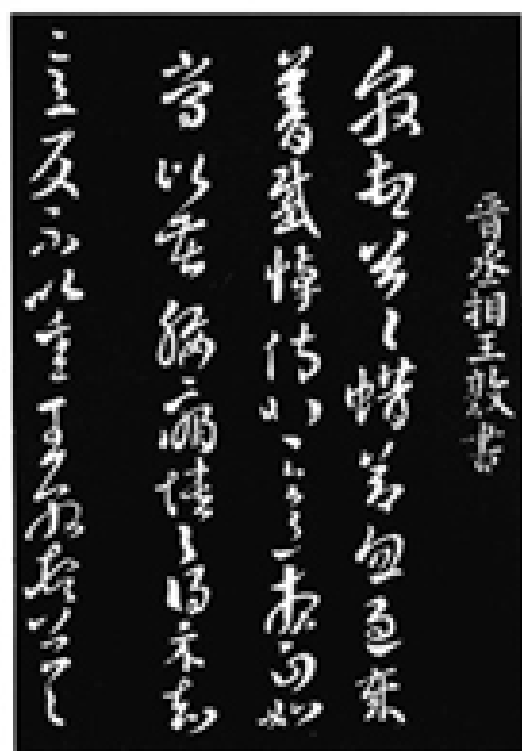 晉丞相王敦書
敦頓首〻蜡節忽過歲
暮感悼傷悲邑〻想自如
常比苦腰痛憒〻得示知
意反不以悉王敦頓首〻